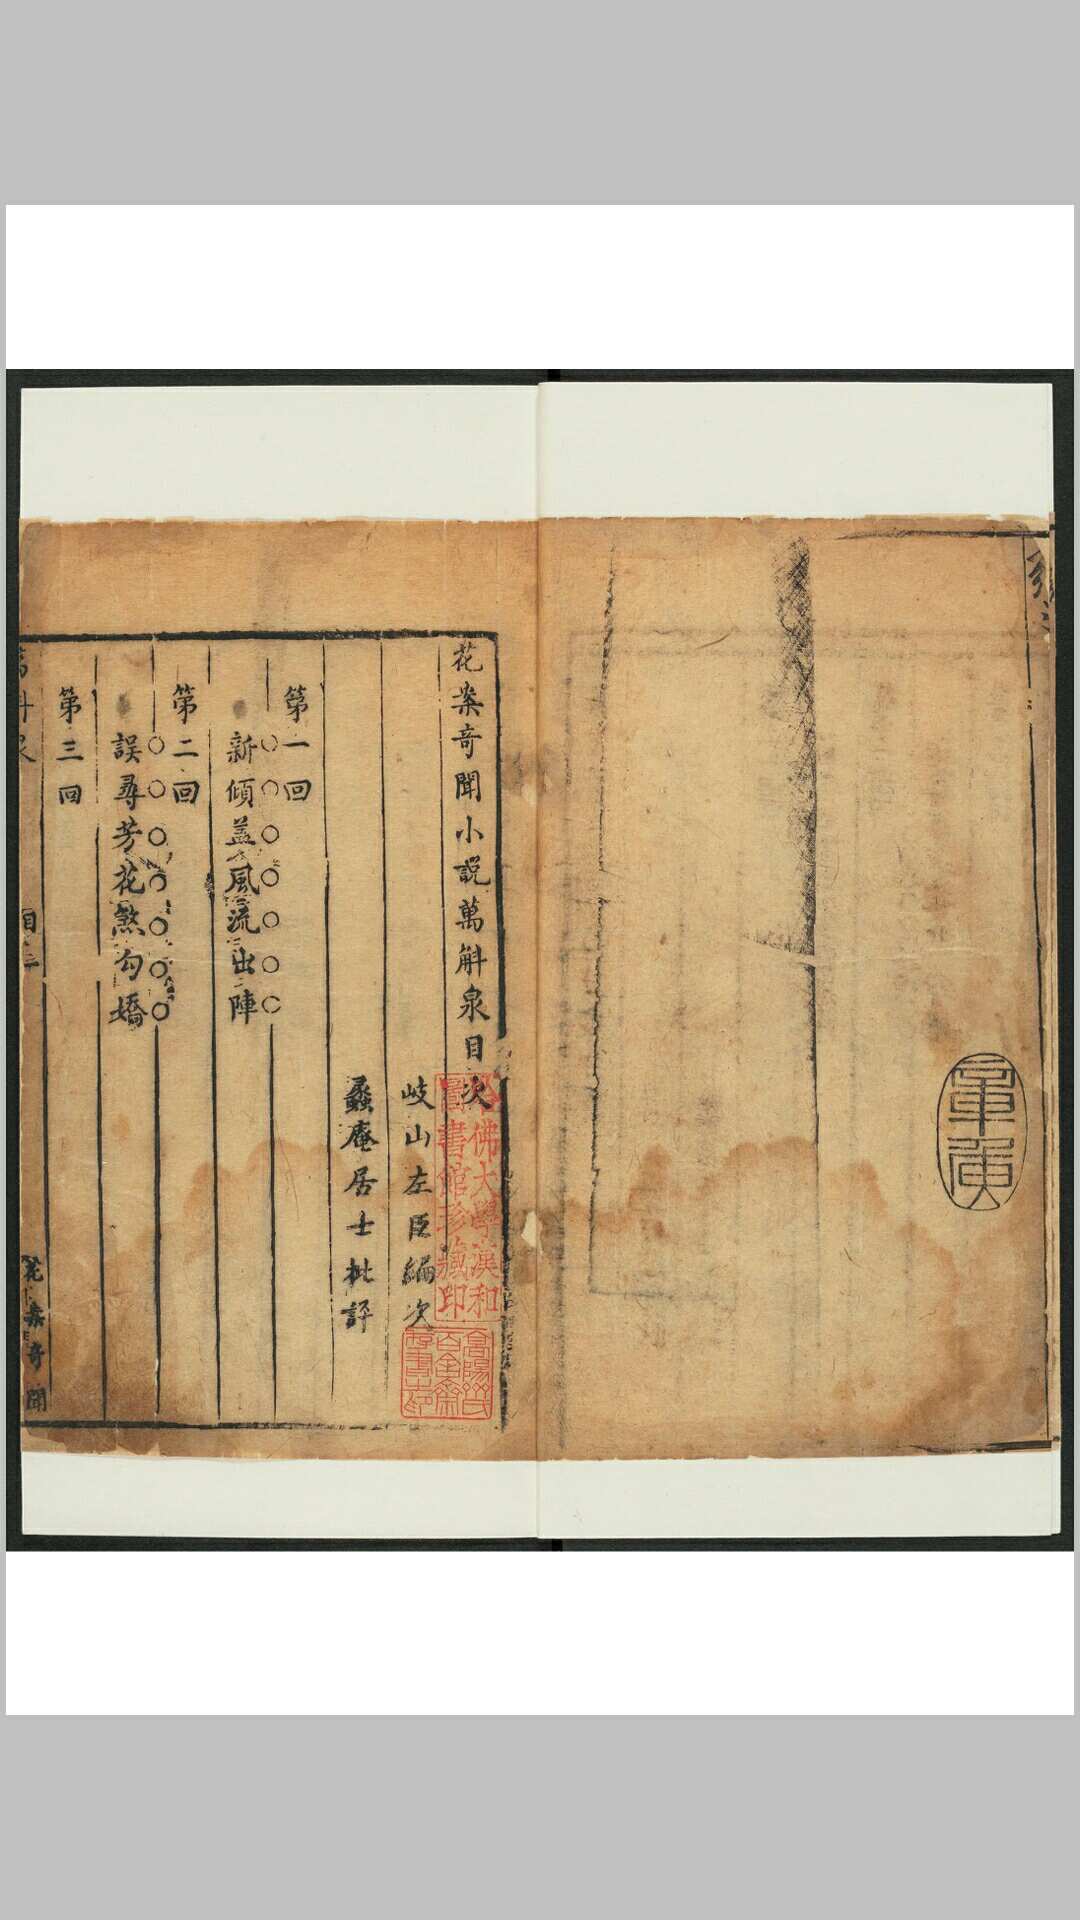 花案奇聞小説萬斛泉目次
岐山左臣編次
蠡庵居士批評
第一回
○○○○○○○
新傾盖風流出陣
第二回
○○○○○○○
誤尋芳花煞勾嬌
第三回
萬斛泉
花案奇聞
哈佛大學漢和
圖書館珍藏印
高陽齊氏
百舍齋
存書印